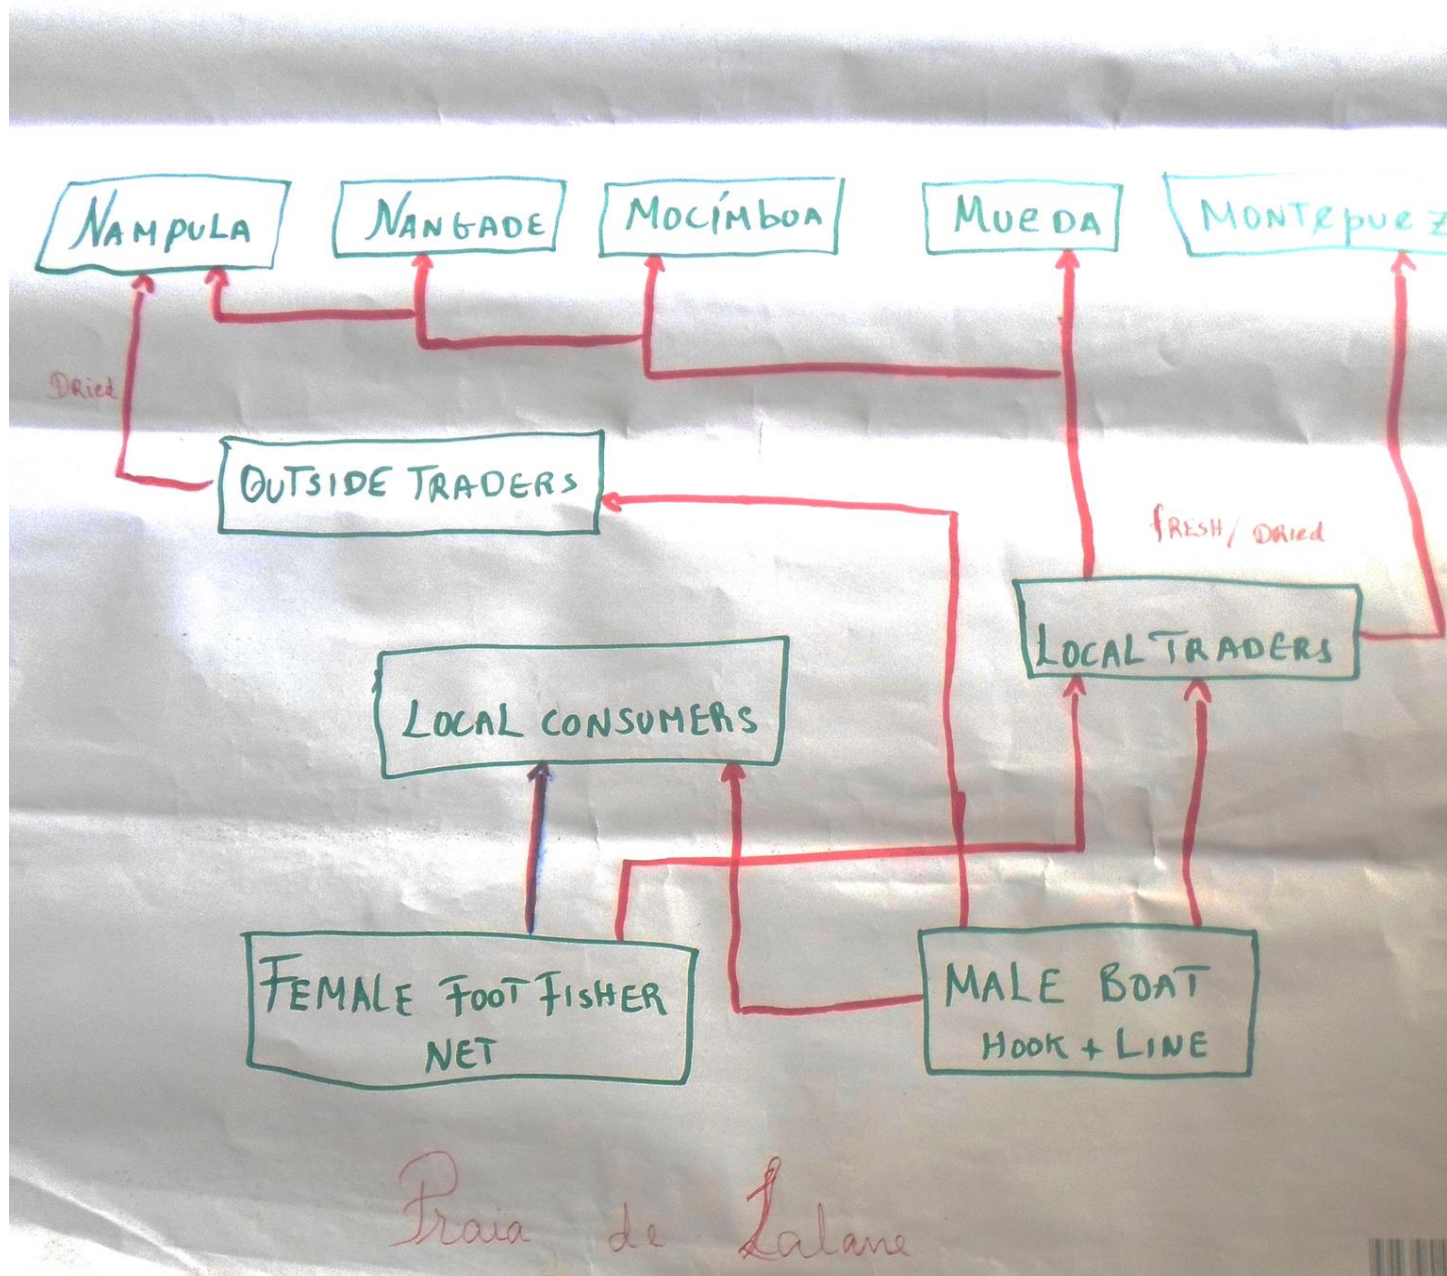 NAMPULA
NANGADE
MOCÍMBOA
MUEDA
MONTEPUEZ
DRied
OUTSIDE TRADERS
fRESH / DRied
LOCAL TRADERS
LOCAL CONSUMERS
FEMALE FOOT FISHER
NET
MALE BOAT
HOOK + LINE
Praia de Lalane